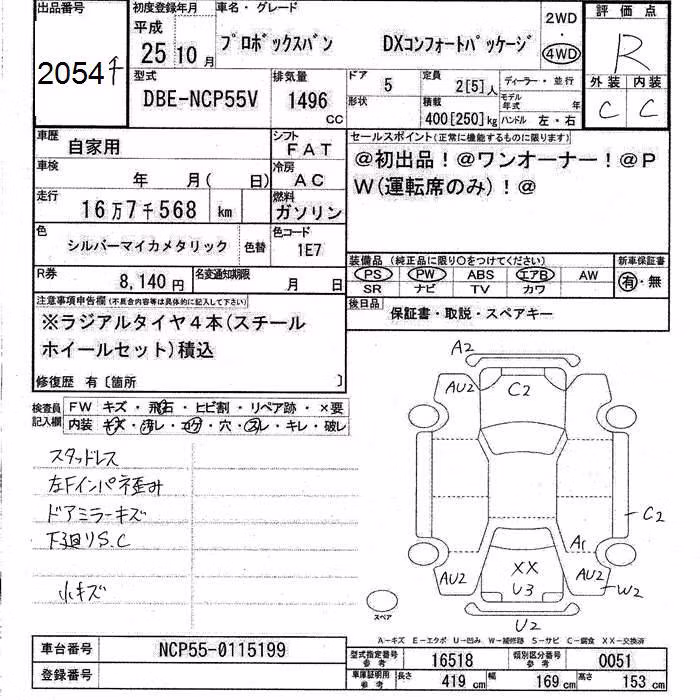 出品番号
20547
初度登録年月
平成
25 10月
車名・グレード
プロボックスバン DXコンフォートパッケージ
2WD
・
4WD
評価点
R
外装 内装
C C
型式
DBE-NCP55V
排気量
1496
CC
ドア
5
形状
定員
2[5]人
積載
400[250]kg
ディーラー・並行
モデル年式 年
ハンドル 左・右
車歴
自家用
シフト
FAT
車検
年 月( 日)
冷房
AC
走行
16万7千568 km
燃料
ガソリン
色
シルバーマイカメタリック
色替
色コード
1E7
R券
8,140円
名変通知期限
月 日
セールスポイント(正常に機能するものに限ります)
@初出品!@ワンオーナー!@P
W(運転席のみ)!@
装備品(純正品に限り○をつけてください)
PS PW ABS エアB AW
SR ナビ TV カワ
新車保証書
有・無
後日品
保証書・取説・スペアキー
注意事項申告欄(不具合内容等は具体的に記入して下さい)
※ラジアルタイヤ4本(スチール
ホイールセット)積込
修復歴 有〔箇所 〕
検査員
記入欄
FW キズ・飛石・ヒビ割・リペア跡・×要
内装 キズ・汚レ・コゲ・穴・スレ・キレ・破レ
スタッドレス
左Fインパネ歪み
ドアミラーキズ
下廻りS.C
小キズ
A2
AU2 C2 AU2
C2
A1
AU2 XX AU2
U3 W2
U2
スペア
A−キズ E−エクボ U−凹み W−補修跡 S−サビ C−腐食 XX−交換済
車台番号
NCP55-0115199
登録番号
型式指定番号
参考
16518
類別区分番号
参考
0051
車庫証明用
参考
長さ 419cm 幅 169cm 高さ 153cm